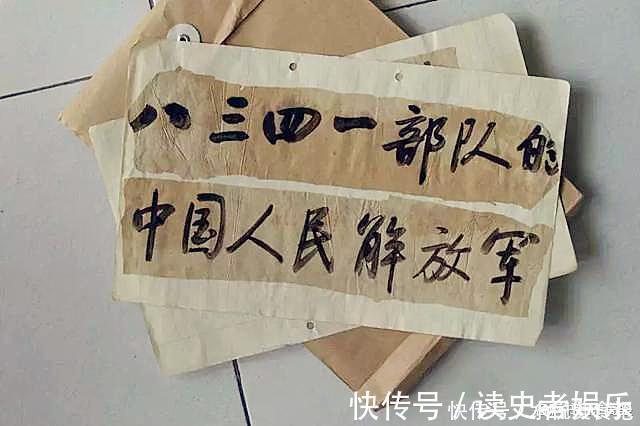 八三四一部队的
中国人民解放军
快传号／读史者娱乐